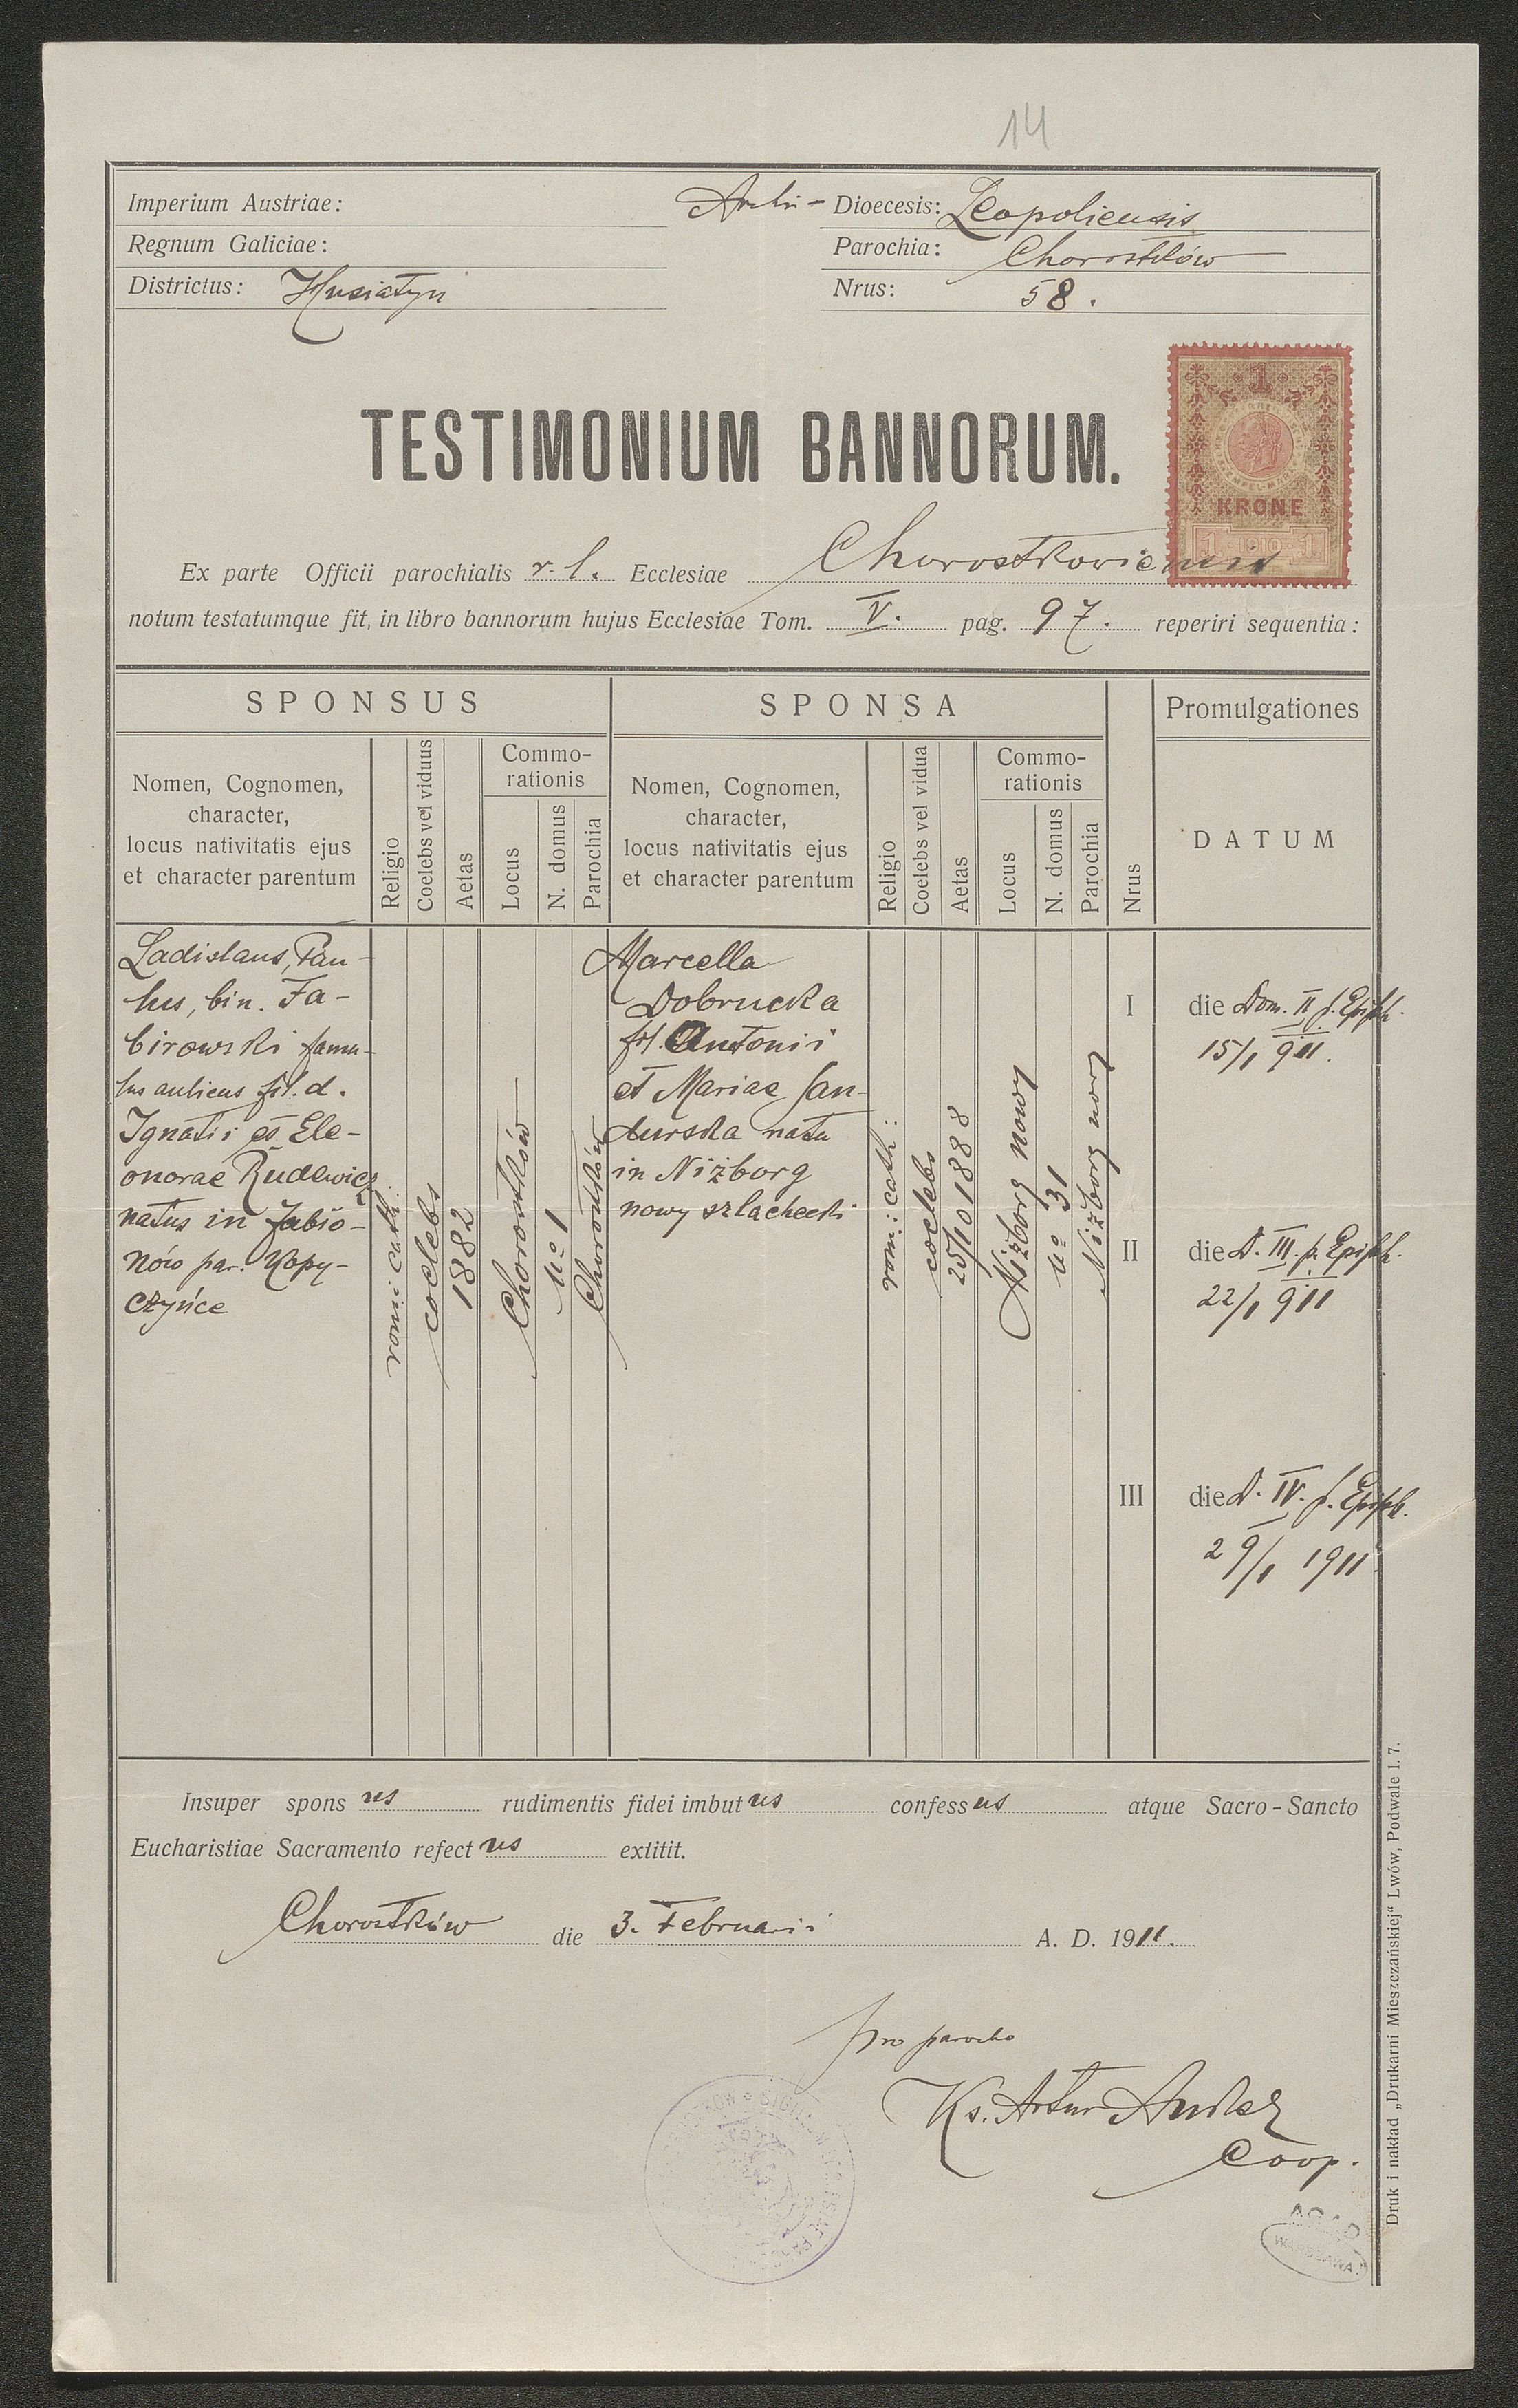 14
Imperium Austriae:
Regnum Galiciae:
Districtus: Husiatyn
Archi- Dioecesis: Leopoliensis
Parochia: Chorostków
Nrus: 58.
1
KRONE
1 1910 1
TESTIMONIUM BANNORUM.
Ex parte Officii parochialis r. l. Ecclesiae Chorostkoviensis
notum testatumque fit, in libro bannorum hujus Ecclesiae Tom. V. pag. 97. reperiri sequentia:
SPONSUS
SPONSA
Promulgationes
Nomen, Cognomen,
character,
locus nativitatis ejus
et character parentum
Religio
Coelebs vel viduus
Aetas
Commo-
rationis
Locus
N. domus
Parochia
Nomen, Cognomen,
character,
locus nativitatis ejus
et character parentum
Religio
Coelebs vel vidua
Aetas
Commo-
rationis
Locus
N. domus
Parochia
Nrus
DATUM
Ladislaus, Pau-
lus, bin. Fa-
birowski famu-
lus aulicus fil. d.
Ignatii et Ele-
onorae Rudewicz
natus in Jabło-
nów par. Kopy-
czyńce
rom: cath:
coelebs
1882
Chorostków
No 1
Chorostków
Marcella
Dobrucka
fil. Antonii
et Mariae San-
durska nata
in Niżborg
nowy szlachecki
rom: cath:
coelebs
25/10 1888
Niżborg nowy
No 31
Niżborg nowy
I die Dom. II p. Epiph.
15/1 911.
II die D. III. p. Epiph.
22/1 911
III die D. IV. p. Epiph.
29/1 1911
Insuper spons us rudimentis fidei imbut us confess us atque Sacro-Sancto
Eucharistiae Sacramento refect us extitit.
Chorostków die 3. Februarii A. D. 1911.
pro parocho
Ks. Artur
Coop.
AGAD
WARSZAWA
Druk i nakład „Drukarni Mieszczańskiej" Lwów, Podwale l. 7.